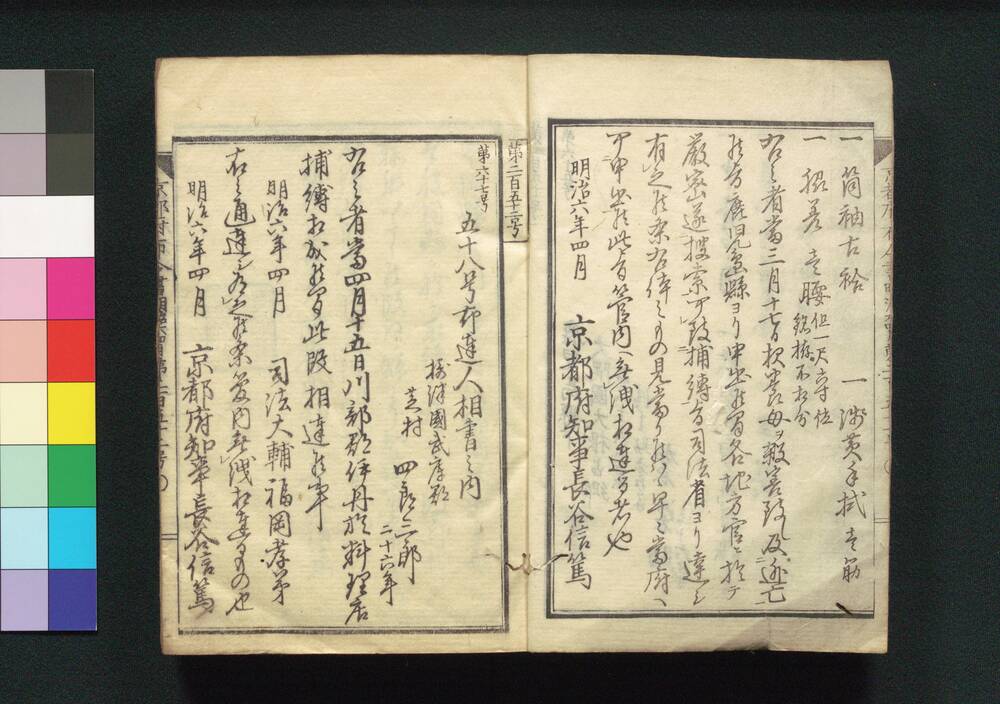 一 筒袖古袷 一 浅黄手拭 壱筋
一 脇差 壱腰 但一尺寸位
銘拵不相分
右之者當三月十七日夜養母ヲ殺害致シ及逃亡
候旨鹿児島縣ヨリ申出候間各地方官ニ於テ
厳密遂捜索可致捕縛旨司法省ヨリ達シ
有之候条右体之もの見当り候ハヽ早々当府ヘ
可申出候此旨管内ヘ無洩相達する者也
明治六年四月
京都府知事長谷信篤
第二百五十二号
第六十七号
五十八号布達人相書之内
摂津國武庫郡
芝村 四郎三郎
二十六年
右之者當四月十五日川部郡伊丹於料理店
捕縛相成候間此段相達候事
明治六年四月 司法大輔福岡孝弟
右之通達シ有之候条管内無洩相達するもの也
明治六年四月 京都府知事長谷信篤